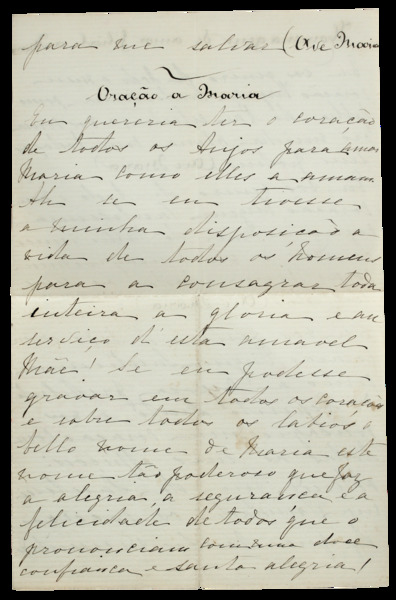 para me salvar (Ave Maria
Oração a Maria
Eu quereria ter o coração
de todos os Anjos para amar
Maria como elles a amam.
Ah se eu tivesse
a minha disposição a
vida de todos os homens
para a consagrar toda
inteira a gloria e au
serviço d'esta amavel
Mãe! Se eu podesse
gravar em todos os corações
e sobre todos os labios o
bello nome de Maria este
nome tão poderoso que faz
a alegria, a segurança e a
felicidade de todos que o
pronunciam com uma doce
confiança e santa alegria!